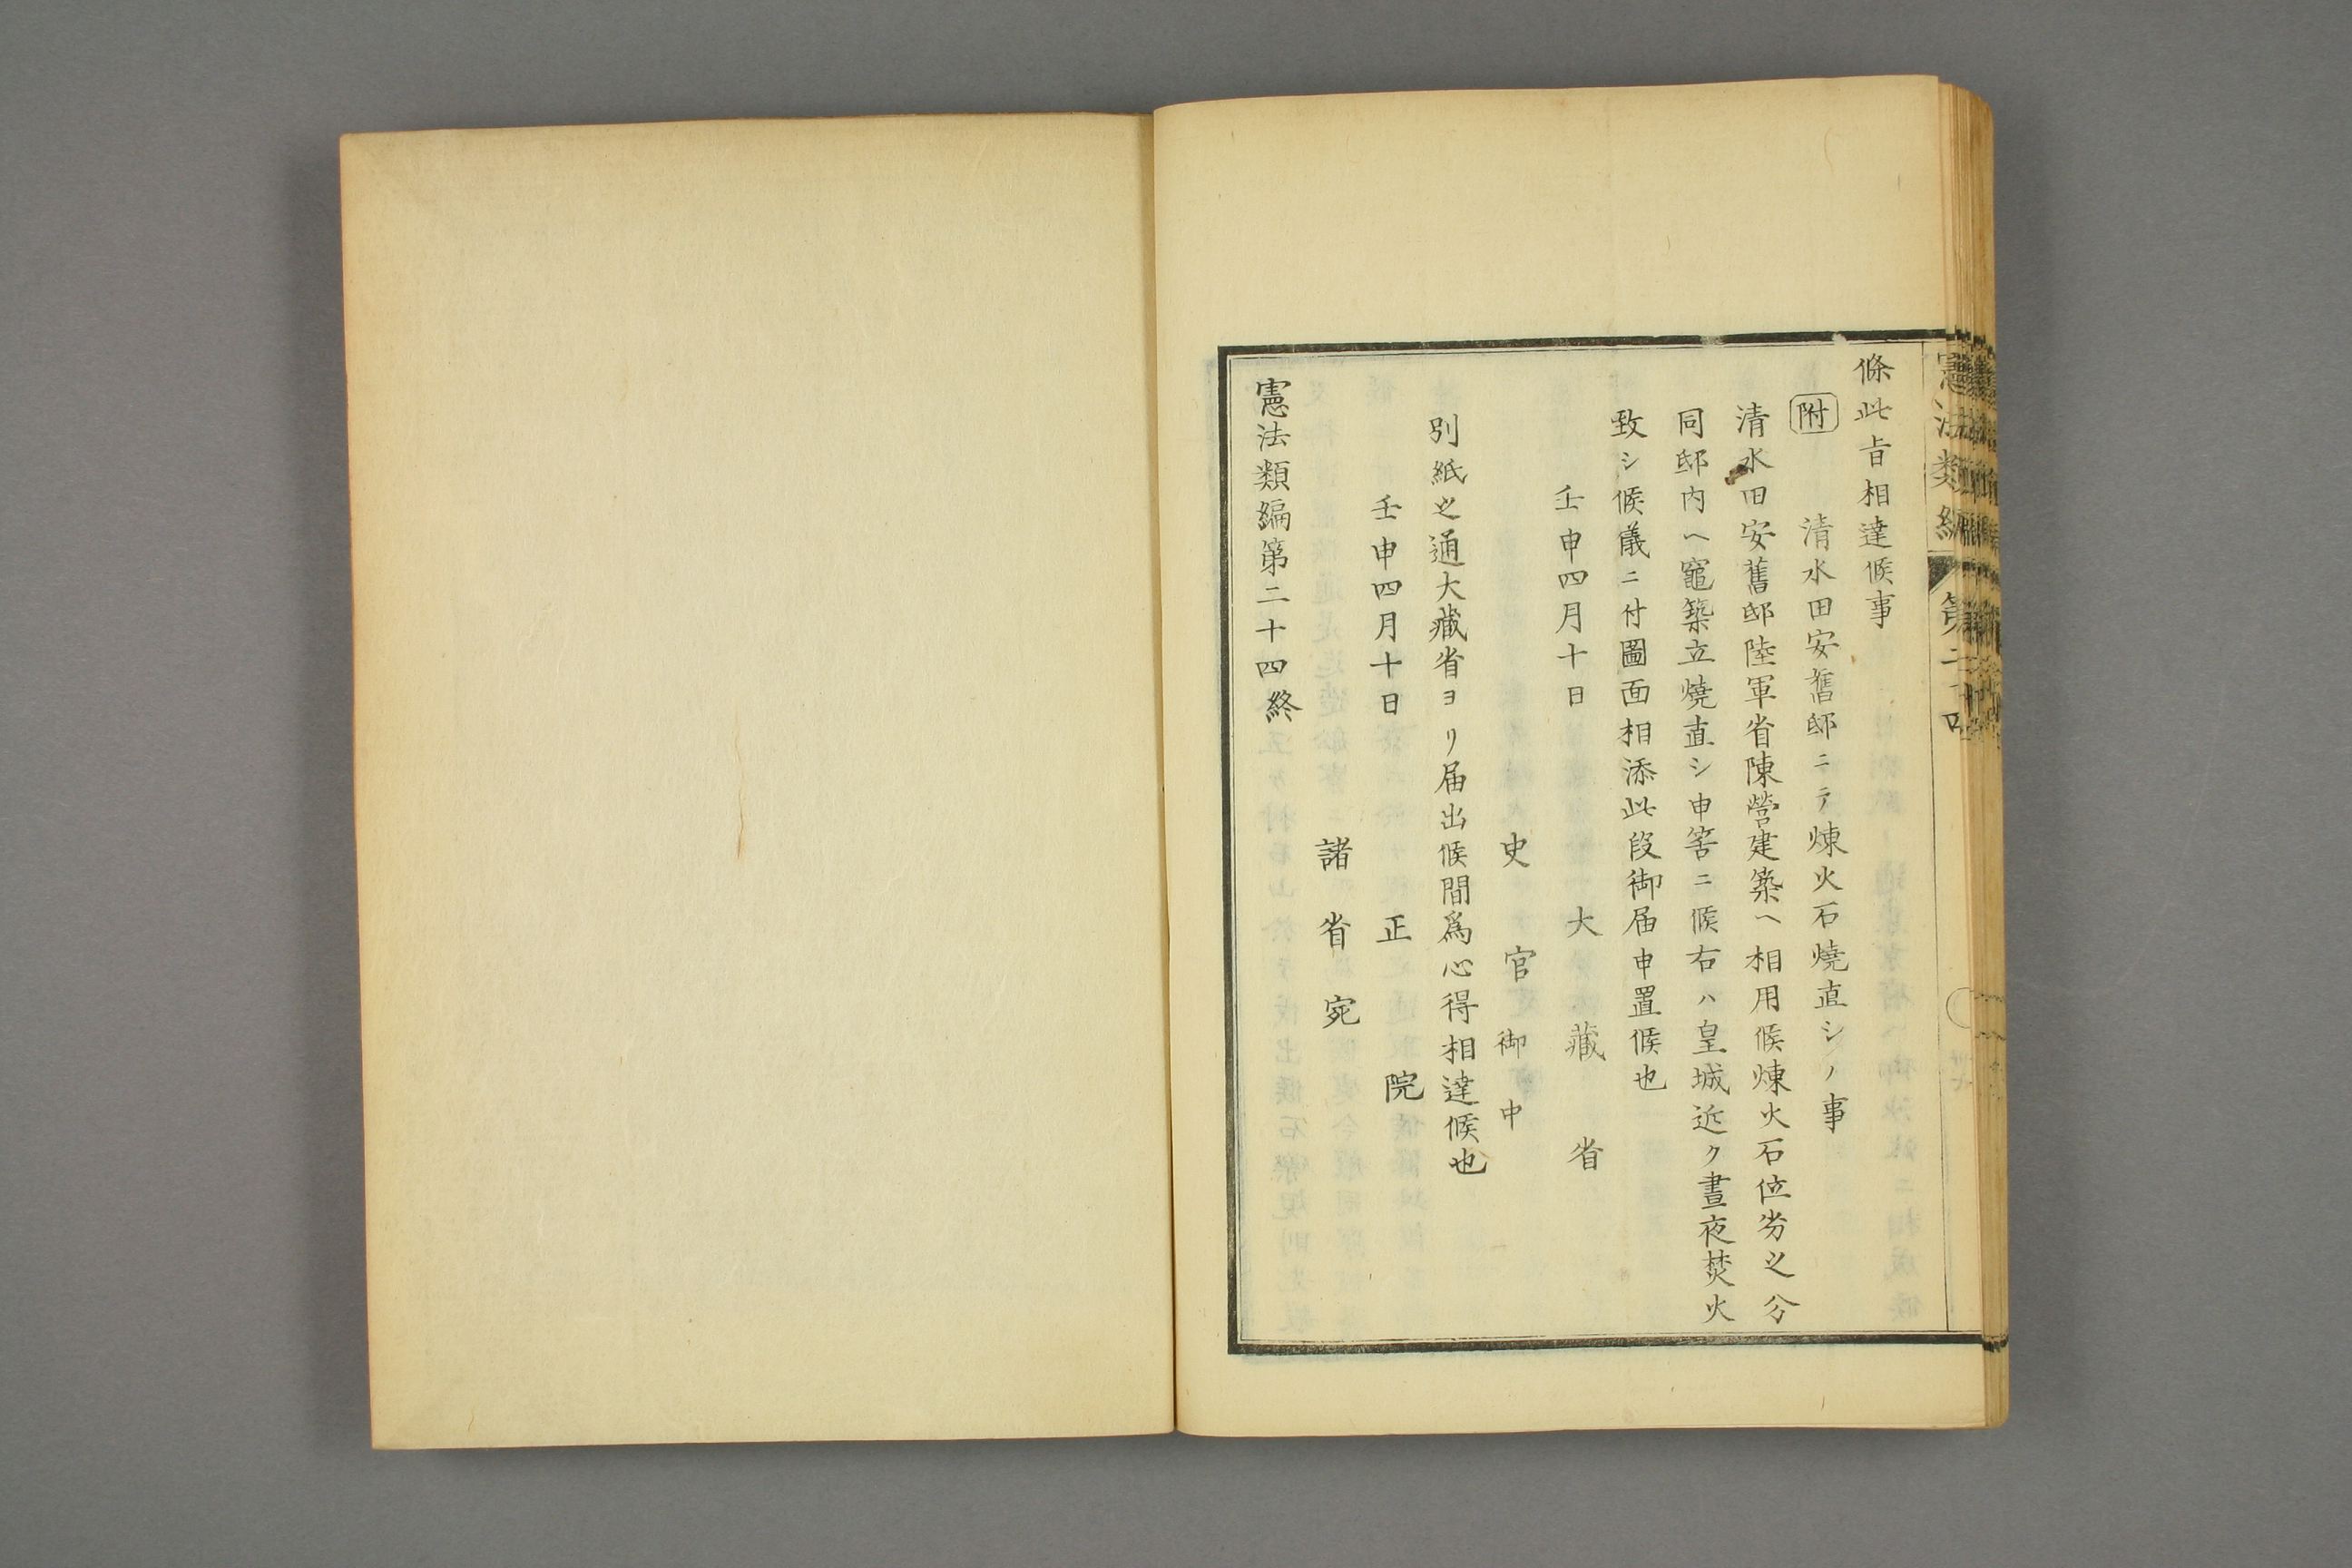 憲法類編 第二十四
條此旨相達候事
附 清水田安舊邸ニテ煉火石燒直シノ事
清水田安舊邸陸軍省陳營建築ヘ相用候煉火石位劣之分
同邸内ヘ竈築立燒直シ申筈ニ候右ハ皇城近ク晝夜焚火
致シ候儀ニ付圖面相添此段御届申置候也
壬申四月十日 大藏省
史官御中
別紙之通大藏省ヨリ届出候間爲心得相達候也
壬申四月十日 正院
諸省宛
憲法類編第二十四終